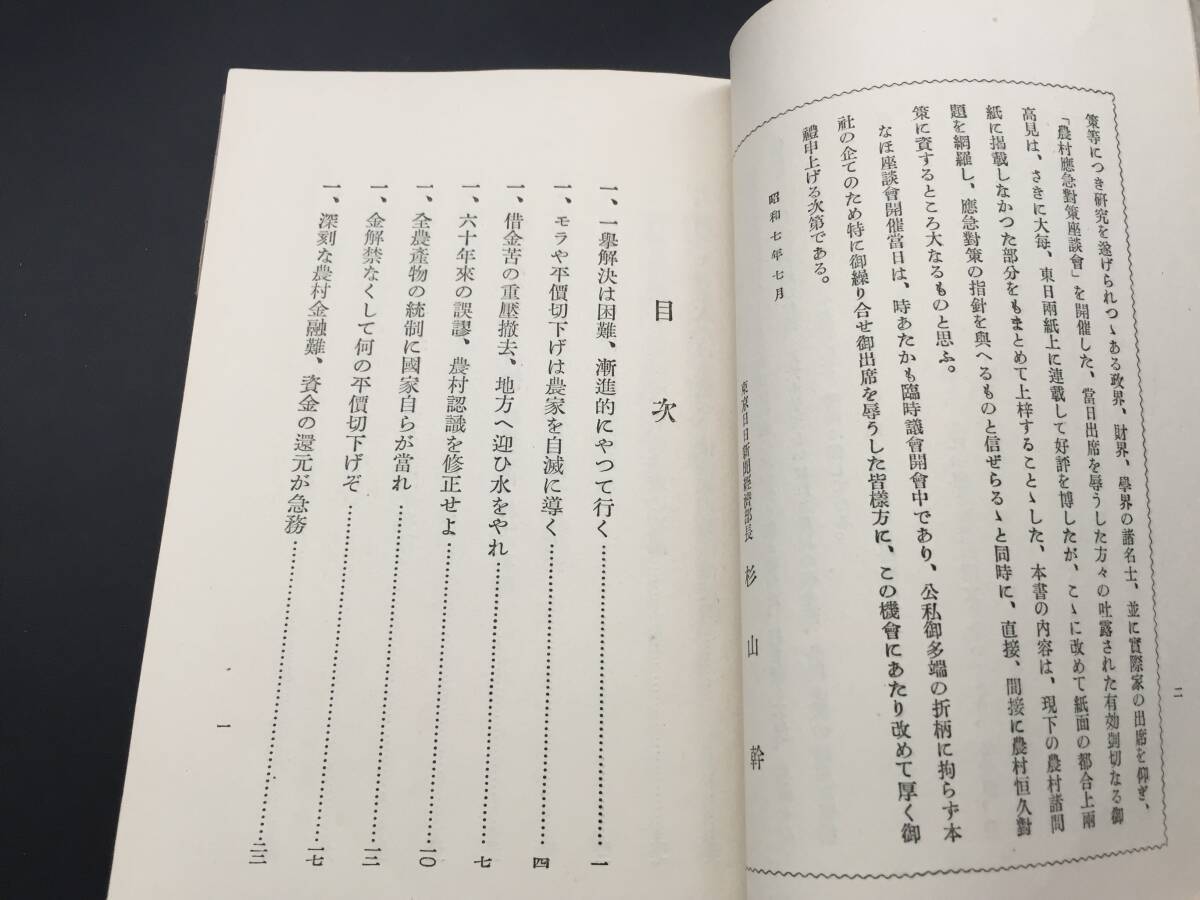 二
策等につき硏究を遂げられつゝある政界、財界、學界の諸名士、並に實際家の出席を仰ぎ、
「農村應急對策座談會」を開催した、當日出席を辱うした方々の吐露された有効剴切なる御
高見は、さきに大每、東日兩紙上に連載して好評を博したが、こゝに改めて紙面の都合上兩
紙に揭載しなかつた部分をもまとめて上梓することゝした、本書の内容は、現下の農村諸問
題を網羅し、應急對策の指針を與へるものと信ぜらるゝと同時に、直接、間接に農村恒久對
策に資するところ大なるものと思ふ。
なほ座談會開催當日は、時あたかも臨時議會開會中であり、公私御多端の折柄に拘らず本
社の企てのため特に御繰り合せ御出席を辱うした皆樣方に、この機會にあたり改めて厚く御
禮申上げる次第である。
昭和七年七月
東京日日新聞經濟部長 杉山幹
目次
一、一擧解決は困難、漸進的にやつて行く……一
一、モラや平價切下げは農家を自滅に導く……四
一、借金苦の重壓撤去、地方へ迎ひ水をやれ……七
一、六十年來の誤謬、農村認識を修正せよ……一〇
一、全農產物の統制に國家自らが當れ……一二
一、金解禁なくして何の平價切下げぞ……一七
一、深刻な農村金融難、資金の還元が急務……二二
一